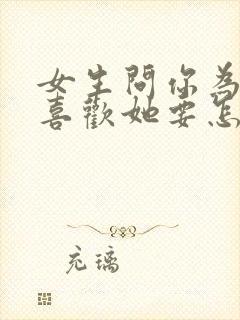 女生問你為
喜歡她要怎
充璃